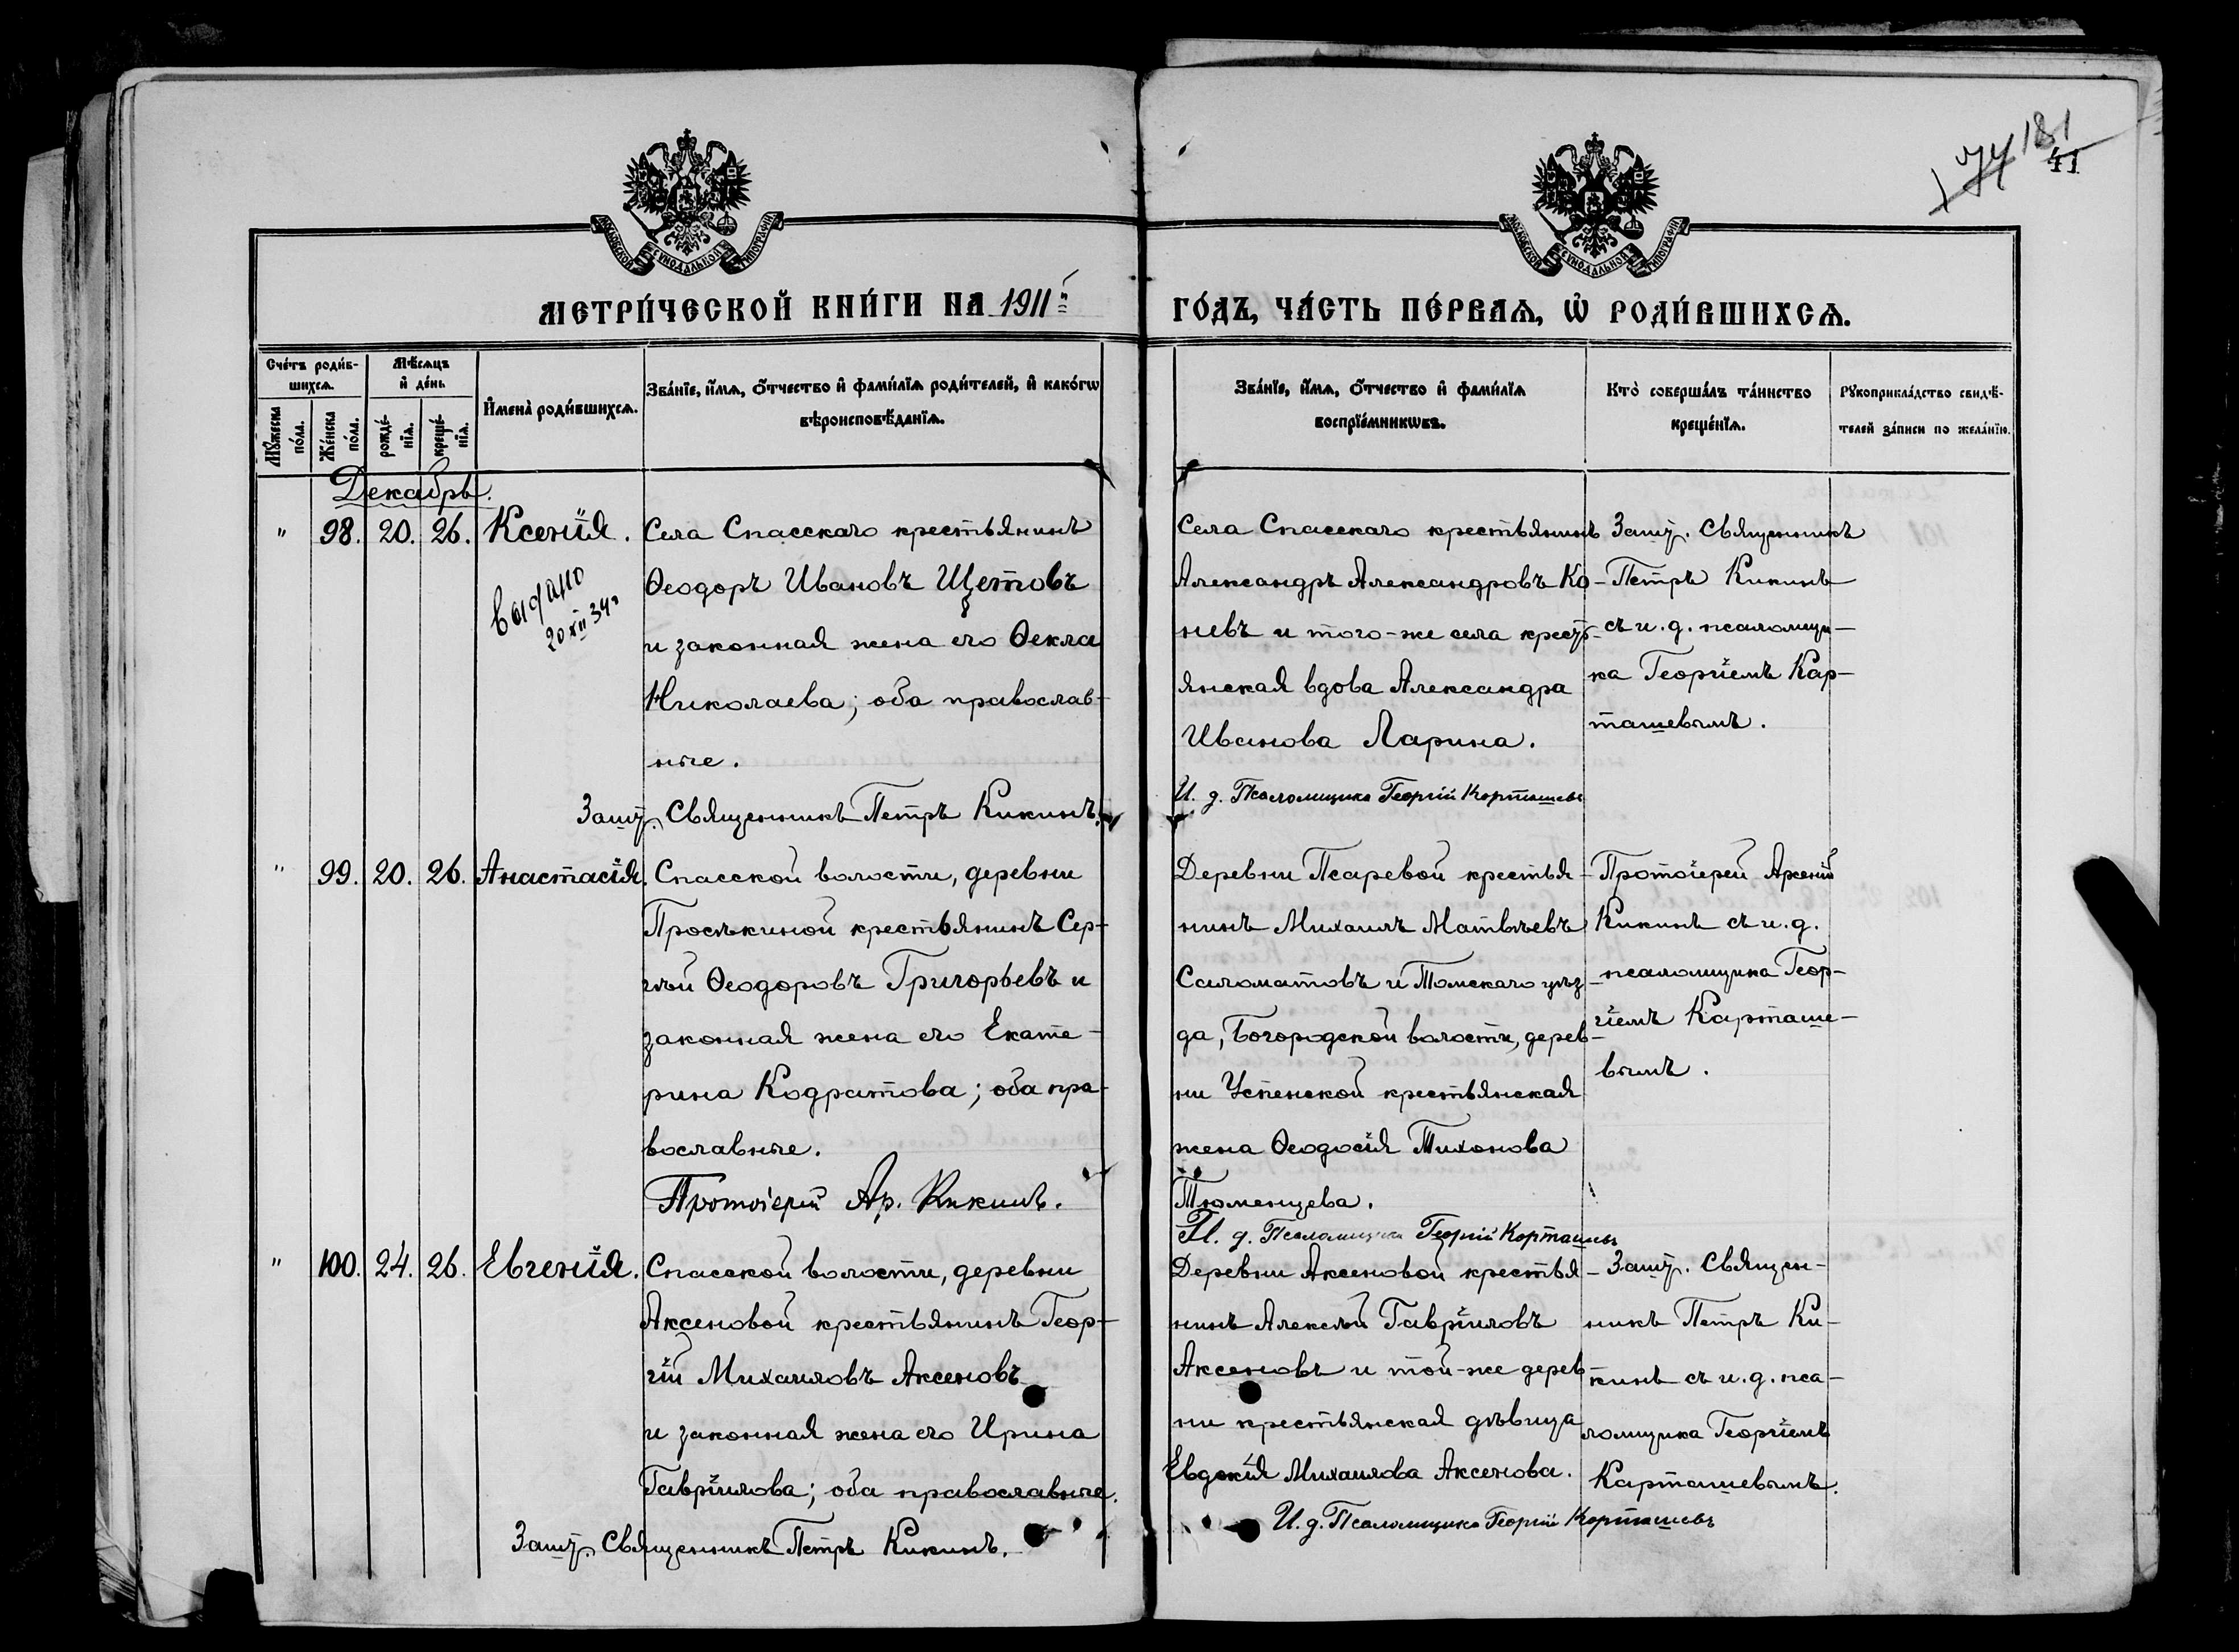 174 181
41
МОСКОВСКОЙ СУНОДАЛЬНОЙ ТИПОГРАФІИ
МОСКОВСКОЙ СУНОДАЛЬНОЙ ТИПОГРАФІИ
МЕТРИ́ЧЕСКОЙ КНИ́ГИ НА 1911й
ГО́ДЪ, ЧА́СТЬ ПЕ́РВАѦ, Ѡ҆ РОДИ́ВШИХСѦ.
Сче́тъ роди́в-
шихсѧ.
Мꙋ́жеска
по́ла.
Же́нска
по́ла.
Мѣ́сѧцъ
и҆ де́нь
рожде́-
нїѧ.
креще́-
нїѧ.
И҆мена̀ роди́вшихсѧ.
Зва́нїе, и҆́мѧ, ѻ҆́тчество и҆ фами́лїѧ роди́телей, и҆ како́гѡ
вѣроисповѣ́данїѧ.
Зва́нїе, и҆́мѧ, ѻ҆́тчество и҆ фами́лїѧ
воспрїе́мникѡвъ.
Кто̀ соверша́лъ та́инство
креще́нїѧ.
Рꙋкоприкла́дство свидѣ́-
телей за́писи по жела́нїю.
Декабрь.
" 98. 20. 26. Ксенія.
Выдано
20 XII 34г
Села Спасскаго крестьянинъ
Ѳеодоръ Ивановъ Щетовъ
и законная жена его Ѳекла
Николаева; оба православ-
ные.
Зашт. Священникъ Петръ Кикинъ.
Села Спасскаго крестьянинъ
Александръ Александровъ Ко-
невъ и того-же села крест-
янская вдова Александра
Иванова Ларина.
И. д. Псаломщика Георгій Карташевъ
Зашт. Священникъ
Петръ Кикинъ
съ и. д. псаломщи-
ка Георгіемъ Кар-
ташевымъ.
" 99. 20. 26. Анастасія.
Спасской волости, деревни
Просѣкиной крестьянинъ Сер-
гѣй Ѳеодоровъ Григорьевъ и
законная жена его Екате-
рина Кодратова; оба пра-
вославные.
Протоіерей Ар. Кикинъ.
Деревни Псаревой крестья-
нинъ Михаилъ Матвѣевъ
Саломатовъ и Томскаго уѣз-
да, Богородской волости, дерев-
ни Успенской крестьянская
жена Ѳеодосія Тихонова
Тюменцева.
И. д. Псаломщика Георгій Карташевъ
Протоіерей Арсеній
Кикинъ съ и. д.
псаломщика Геор-
гіемъ Карташе-
вымъ.
" 100. 24. 26. Евгенія.
Спасской волости, деревни
Аксеновой крестьянинъ Геор-
гій Михаиловъ Аксеновъ
и законная жена его Ирина
Гавріилова; оба православные.
Зашт. Священникъ Петръ Кикинъ.
Деревни Аксеновой крестья-
нинъ Алексѣй Гавріиловъ
Аксеновъ и той-же дерев-
ни крестьянская дѣвица
Евдокія Михаилова Аксенова.
И. д. Псаломщика Георгій Карташевъ
Зашт. Священ-
никъ Петръ Ки-
кинъ съ и. д. пса-
ломщика Георгіемъ
Карташевымъ.